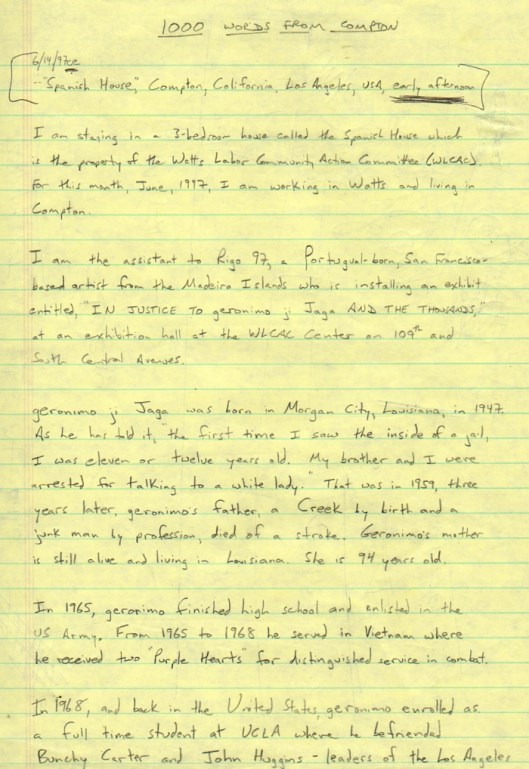 1000 WORDS FROM COMPTON
6/14/97ce
"Spanish House," Compton, California, Los Angeles, USA, early afternoon
I am staying in a 3-bedroom house called the Spanish House which
is the property of the Watts Labor Community Action Committee (WLCAC).
For this month, June, 1997, I am working in Watts and living in
Compton.
I am the assistant to Rigo 97, a Portugual-born, San Francisco-
based artist from the Madeira Islands who is installing an exhibit
entitled, "IN JUSTICE TO geronimo ji Jaga AND THE THOUSANDS,"
at an exhibition hall at the WLCAC Center on 109th and
South Central Avenues.
geronimo ji Jaga was born in Morgan City, Louisiana, in 1947.
As he has told it, "the first time I saw the inside of a jail,
I was eleven or twelve years old. My brother and I were
arrested for talking to a white lady." That was in 1959, three
years later, geronimo's father, a Creek by birth and a
junk man by profession, died of a stroke. Geronimo's mother
is still alive and living in Louisiana. She is 94 years old.
In 1965, geronimo finished high school and enlisted in the
US Army. From 1965 to 1968 he served in Vietnam where
he received two "Purple Hearts" for distinguished service in combat.
In 1968, and back in the United States, geronimo enrolled as
a full time student at UCLA where he befriended
Bunchy Carter and John Huggins - leaders of the Los Angeles